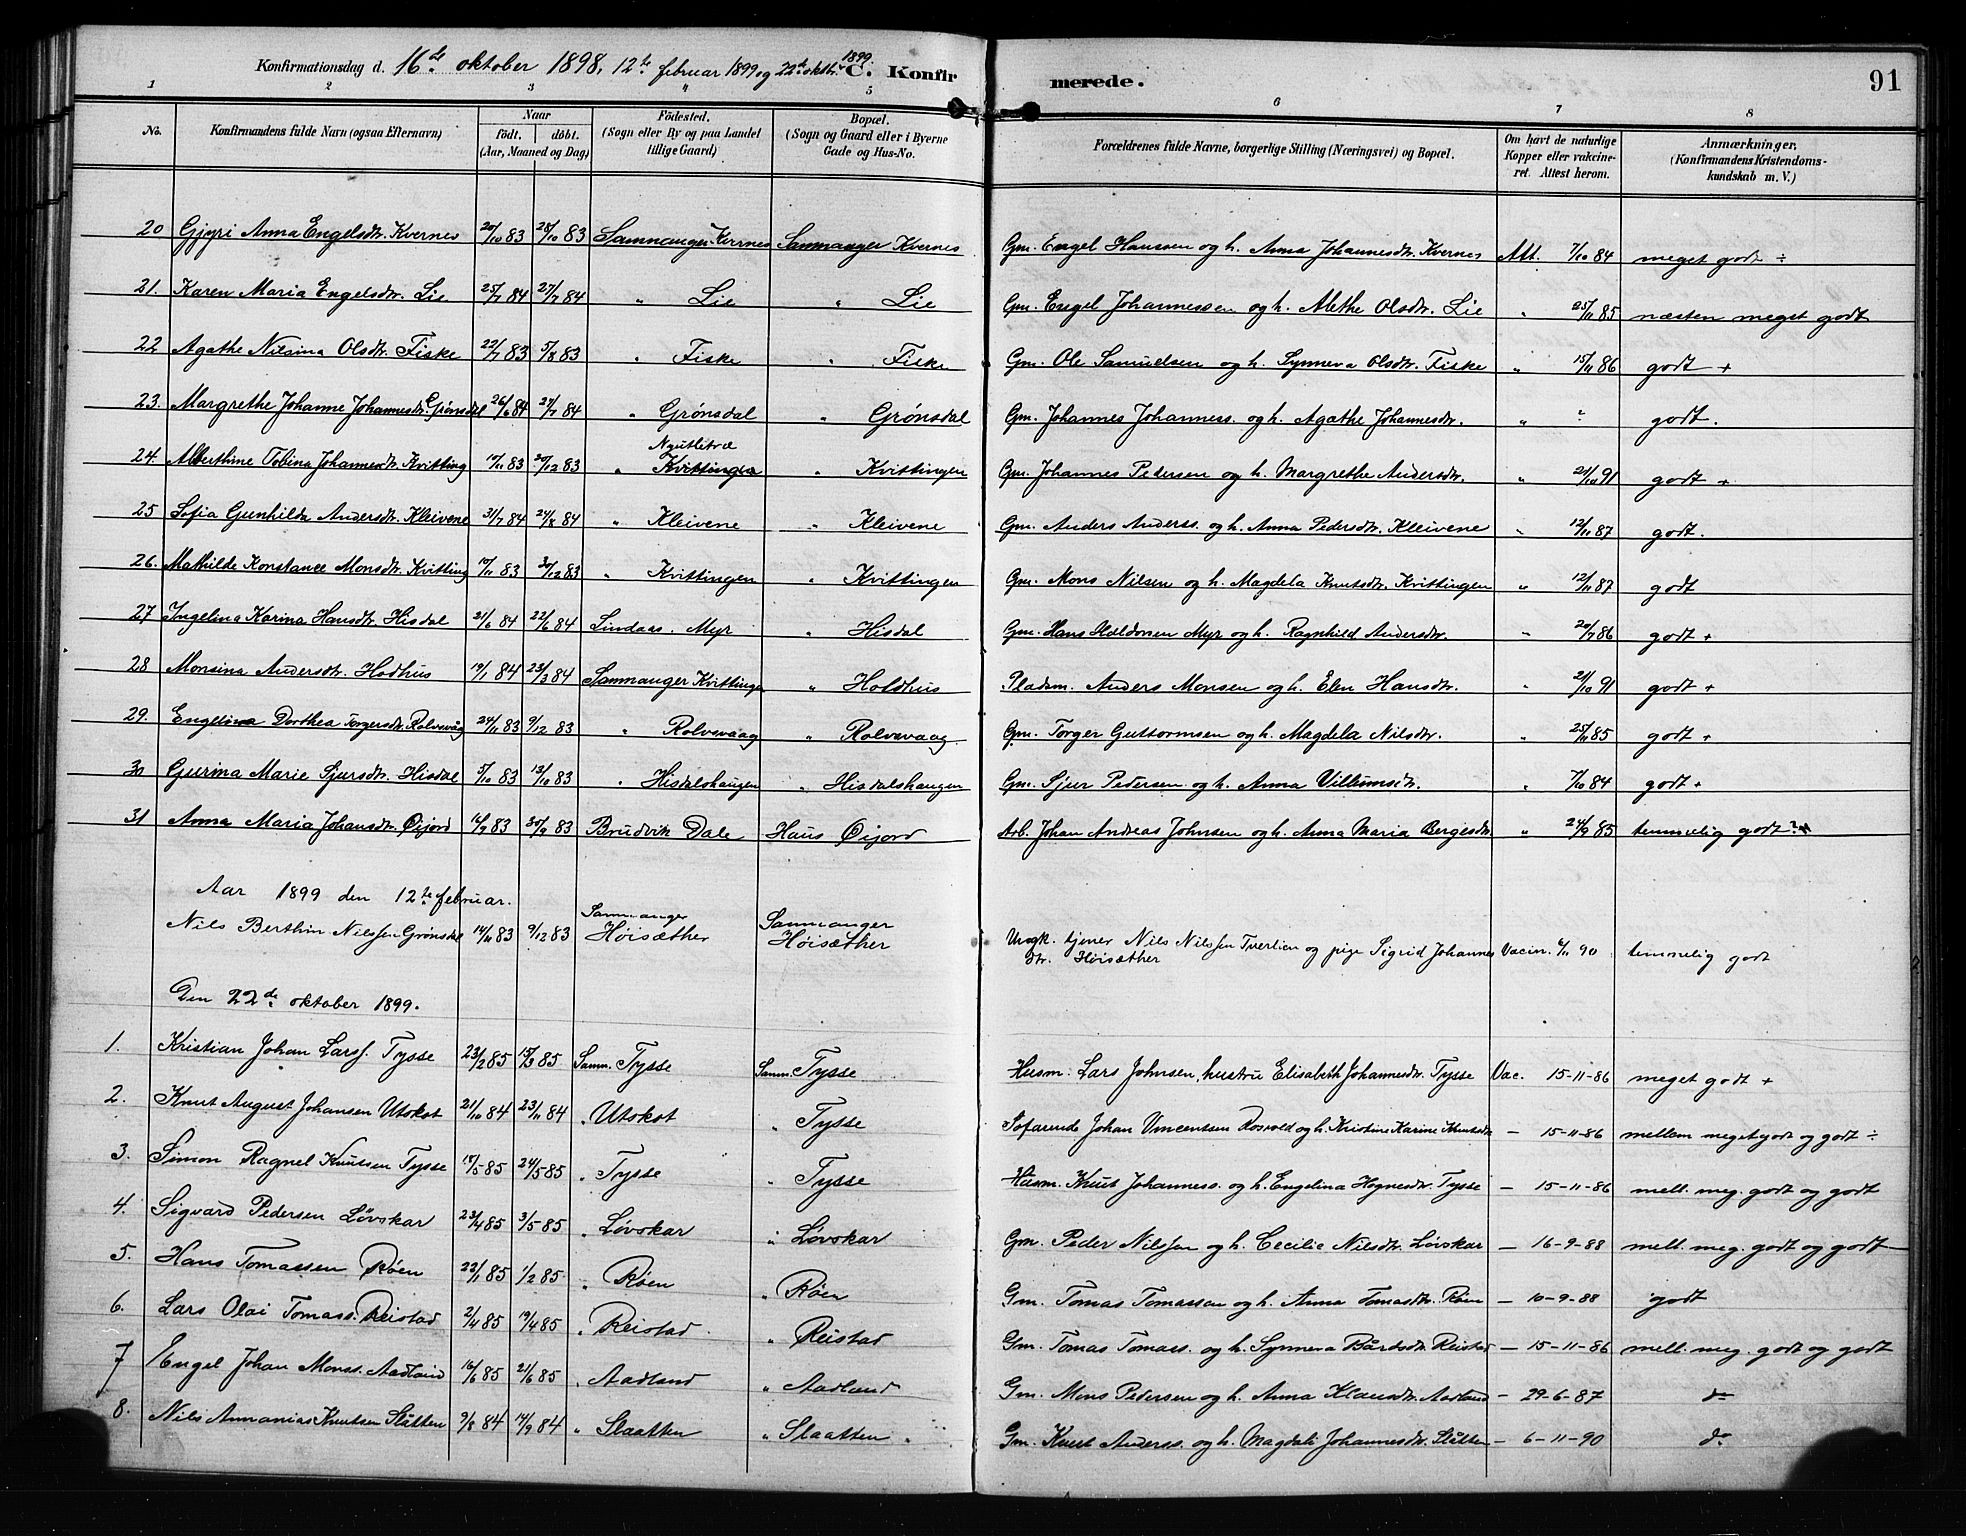 Konfirmationsdag d. 16de oktober 1898, 12te februar 1899 og 22de oktbr. 1899. C. Konfirmerede. 91
1 2 3 " 5 6 7 8
No. Konfirmandens fulde Navn (ogsaa Efternavn) Naar født. døbt. (Aar, Maaned og Dag) Fødested. (Sogn eller By og paa Landet tillige Gaard) Bopæl. (Sogn og Gaard eller i Byerne Gade og Hus-No. Forældrenes fulde Navne, borgerlige Stilling (Næringsvei) og Bopæl. Om havt de naturlige Kopper eller vakcineret. Attest herom. Anmærkninger. (Konfirmandens Kristendomskundskab m. V.)
20 Gjyri Anna Engelsdtr. Kvernes 20/10 83 28/10 83 Samnanger Kvernes Samnanger Kvernes Gm. Engel Hanssen og h. Anna Johannesdtr. Kvernes Att. 7/10 84 meget godt ÷
21. Karen Maria Engelsdtr. Lie 25/7 84 27/7 84 " Lie " Lie Gm. Engel Johannessen og h. Alethe Olsdtr. Lie " 25/11 85 næsten meget godt
22 Agathe Nilsina Olsdtr. Fiske 22/7 83 5/8 83 " Fiske " Fiske Gm. Ole Samuelsen og h. Synneva Olsdtr. Fiske " 15/11 86 godt +
23. Margrethe Johanne Johannesdtr. Grønsdal 26/6 84 27/7 84 " Grønsdal " Grønsdal Gm. Johannes Johanness. og h. Agathe Johannesdtr. " " godt.
24. Alberthine Tobina Johannesdtr. Kvitting 17/11 83 30/12 83 " Kvittingen " Kvittingen Gm. Johannes Pedersen og h. Margrethe Andersdtr. " 21/10 91 godt +
25 Sofia Gunhilda Andersdtr. Kleivene 31/7 84 24/8 84 " Kleivene " Kleivene Gm. Anders Anderss. og h. Anna Pedersdtr. Kleivene " 12/11 87 godt.
26. Mathilde Konstance Monsdtr. Kvitting 17/11 83 /12 83 " Kvittingen " Kvittingen Gm. Mons Nilsen og h. Magdela Knutsdtr. Kvittingen " 12/11 87 godt
27 Ingelina Karina Hansdtr. Hisdal 21/6 84 22/6 84 Lindaas. Myr " Hisdal Gm. Hans Haldorsen Myr og h. Ragnhild Andersdtr. " 20/7 86 godt +
28 Monsina Andersdtr. Hodhus 19/1 84 23/3 84 Samnanger Kvittingen " Holdhus Pladsm. Anders Monsen og h. Elen Hansdtr. " 21/10 91 godt +
29. Engelina Dorthea Torgersdtr. Rolvsvåg 24/11 83 9/12 83 " Rolvsvaag " Rolvsvaag. Gm. Torger Guttormsen og h. Magdela Nilsdtr. " 25/11 85 godt +
30 Gurina Marie Sjursdtr. Hisdal 5/10 83 13/10 83 " Hisdalshaugen " Hisdalshaugen Gm. Sjur Pedersen og h. Anna Villumsdtr. " 7/10 84 godt +
31 Anna Maria Johansdtr. Øijord 16/9 83 30/9 83 Brudvik Dale Haus Øijord Arb. Johan Andreas Johnsen og h. Anna Maria Bergesdtr " 24/9 85 temmelig godt?+
Aar 1899 den 12te februar.
Nils Berthin Nilssen Grønsdal 14/11 83 9/12 83 Samnanger Høisæther Samnanger Høisæther Ungk. tjener Nils Nilssen Tvertien og pige Sigrid Johannes Vacin. 6/11 90 temmelig godt
dtr. Høisæther
Den 22de oktober 1899.
1. Kristian Johan Larss. Tysse 23/2 85 15/3 85 Samn. Tysse Samn. Tysse Husm. Lars Johnsen, hustru Elisabeth Johannesdtr. Tysse Vac. 15-11-86 meget godt +
2. Knut August Johansen Utskot 21/10 84 23/11 84 " Utskot " Tysse Søfarende Johan Vincentsen Rosvold og h. Kristine Karine Knutsdtr — 15-11-86 mellem meget godt og godt ÷
3. Simon Ragnel Knutsen Tysse 15/5 85 24/5 85 " Tysse " Tysse Husm. Knut Johanness. og h. Engelina Hognesdtr. Tysse — 15-11-86 mell. meg. godt og godt
4. Sigvard Pedersen Løvskar 23/4 85 3/5 85 " Løvskar " Løvskar Gm. Peder Nilssen og h. Cecilie Nilsdtr. Løvskar — 16-9-88 mell. meg. godt og godt
5. Hans Tomassen Røen 22/1 85 1/2 85 " Røen " Røen Gm. Tomas Tomassen og h. Anna Tomasdtr. Røen — 10-9-88 godt
6. Lars Olai Tomass. Reistad 2/4 85 19/4 85 " Reistad " Reistad Gm. Tomas Tomass. og h. Synneva Bårdsdtr. Reistad — 15-11-86 mell. meg. godt og godt
7 Engel Johan Monss. Aadland 16/6 85 21/6 85 " Aadland " Aadland Gm. Mons Pedersen og h. Anna Klausdtr. Aadland — 29-6-87 do
8. Nils Annanias Knutsen Slåtten 9/8 84 14/9 84 " Slaatten " Slaatten " Gm. Knut Anderss. og h. Magdeli Johannesdtr. Slåtten — 6-11-90 do